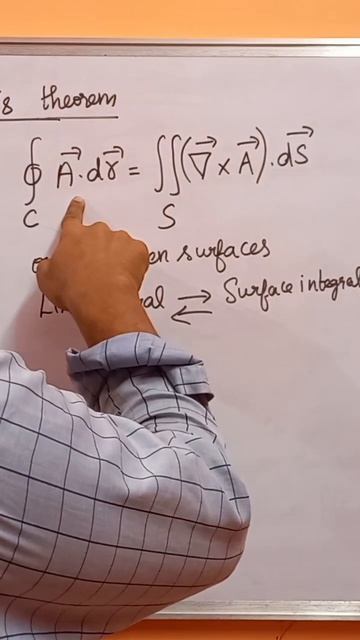 's theorem
∮ A⃗ · dr⃗ = ∬ (∇⃗ × A⃗) · dS⃗
C S
surfaces
⇄ Surface integral